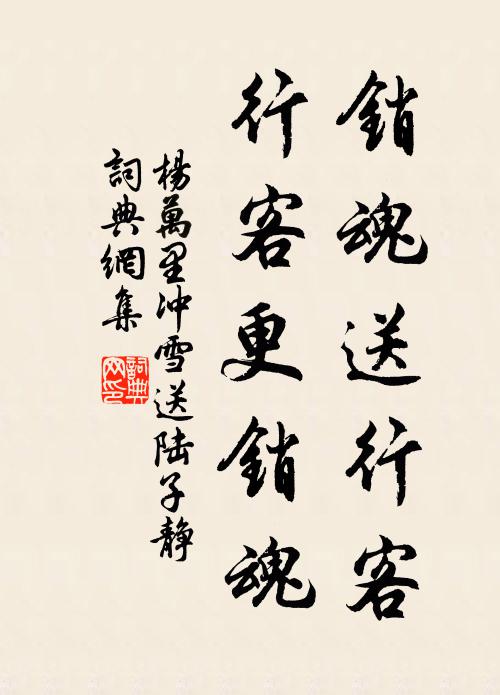 銷魂送行客
行客更銷魂
楊萬里冲雪送陆子静
詞典網集
詞典網印